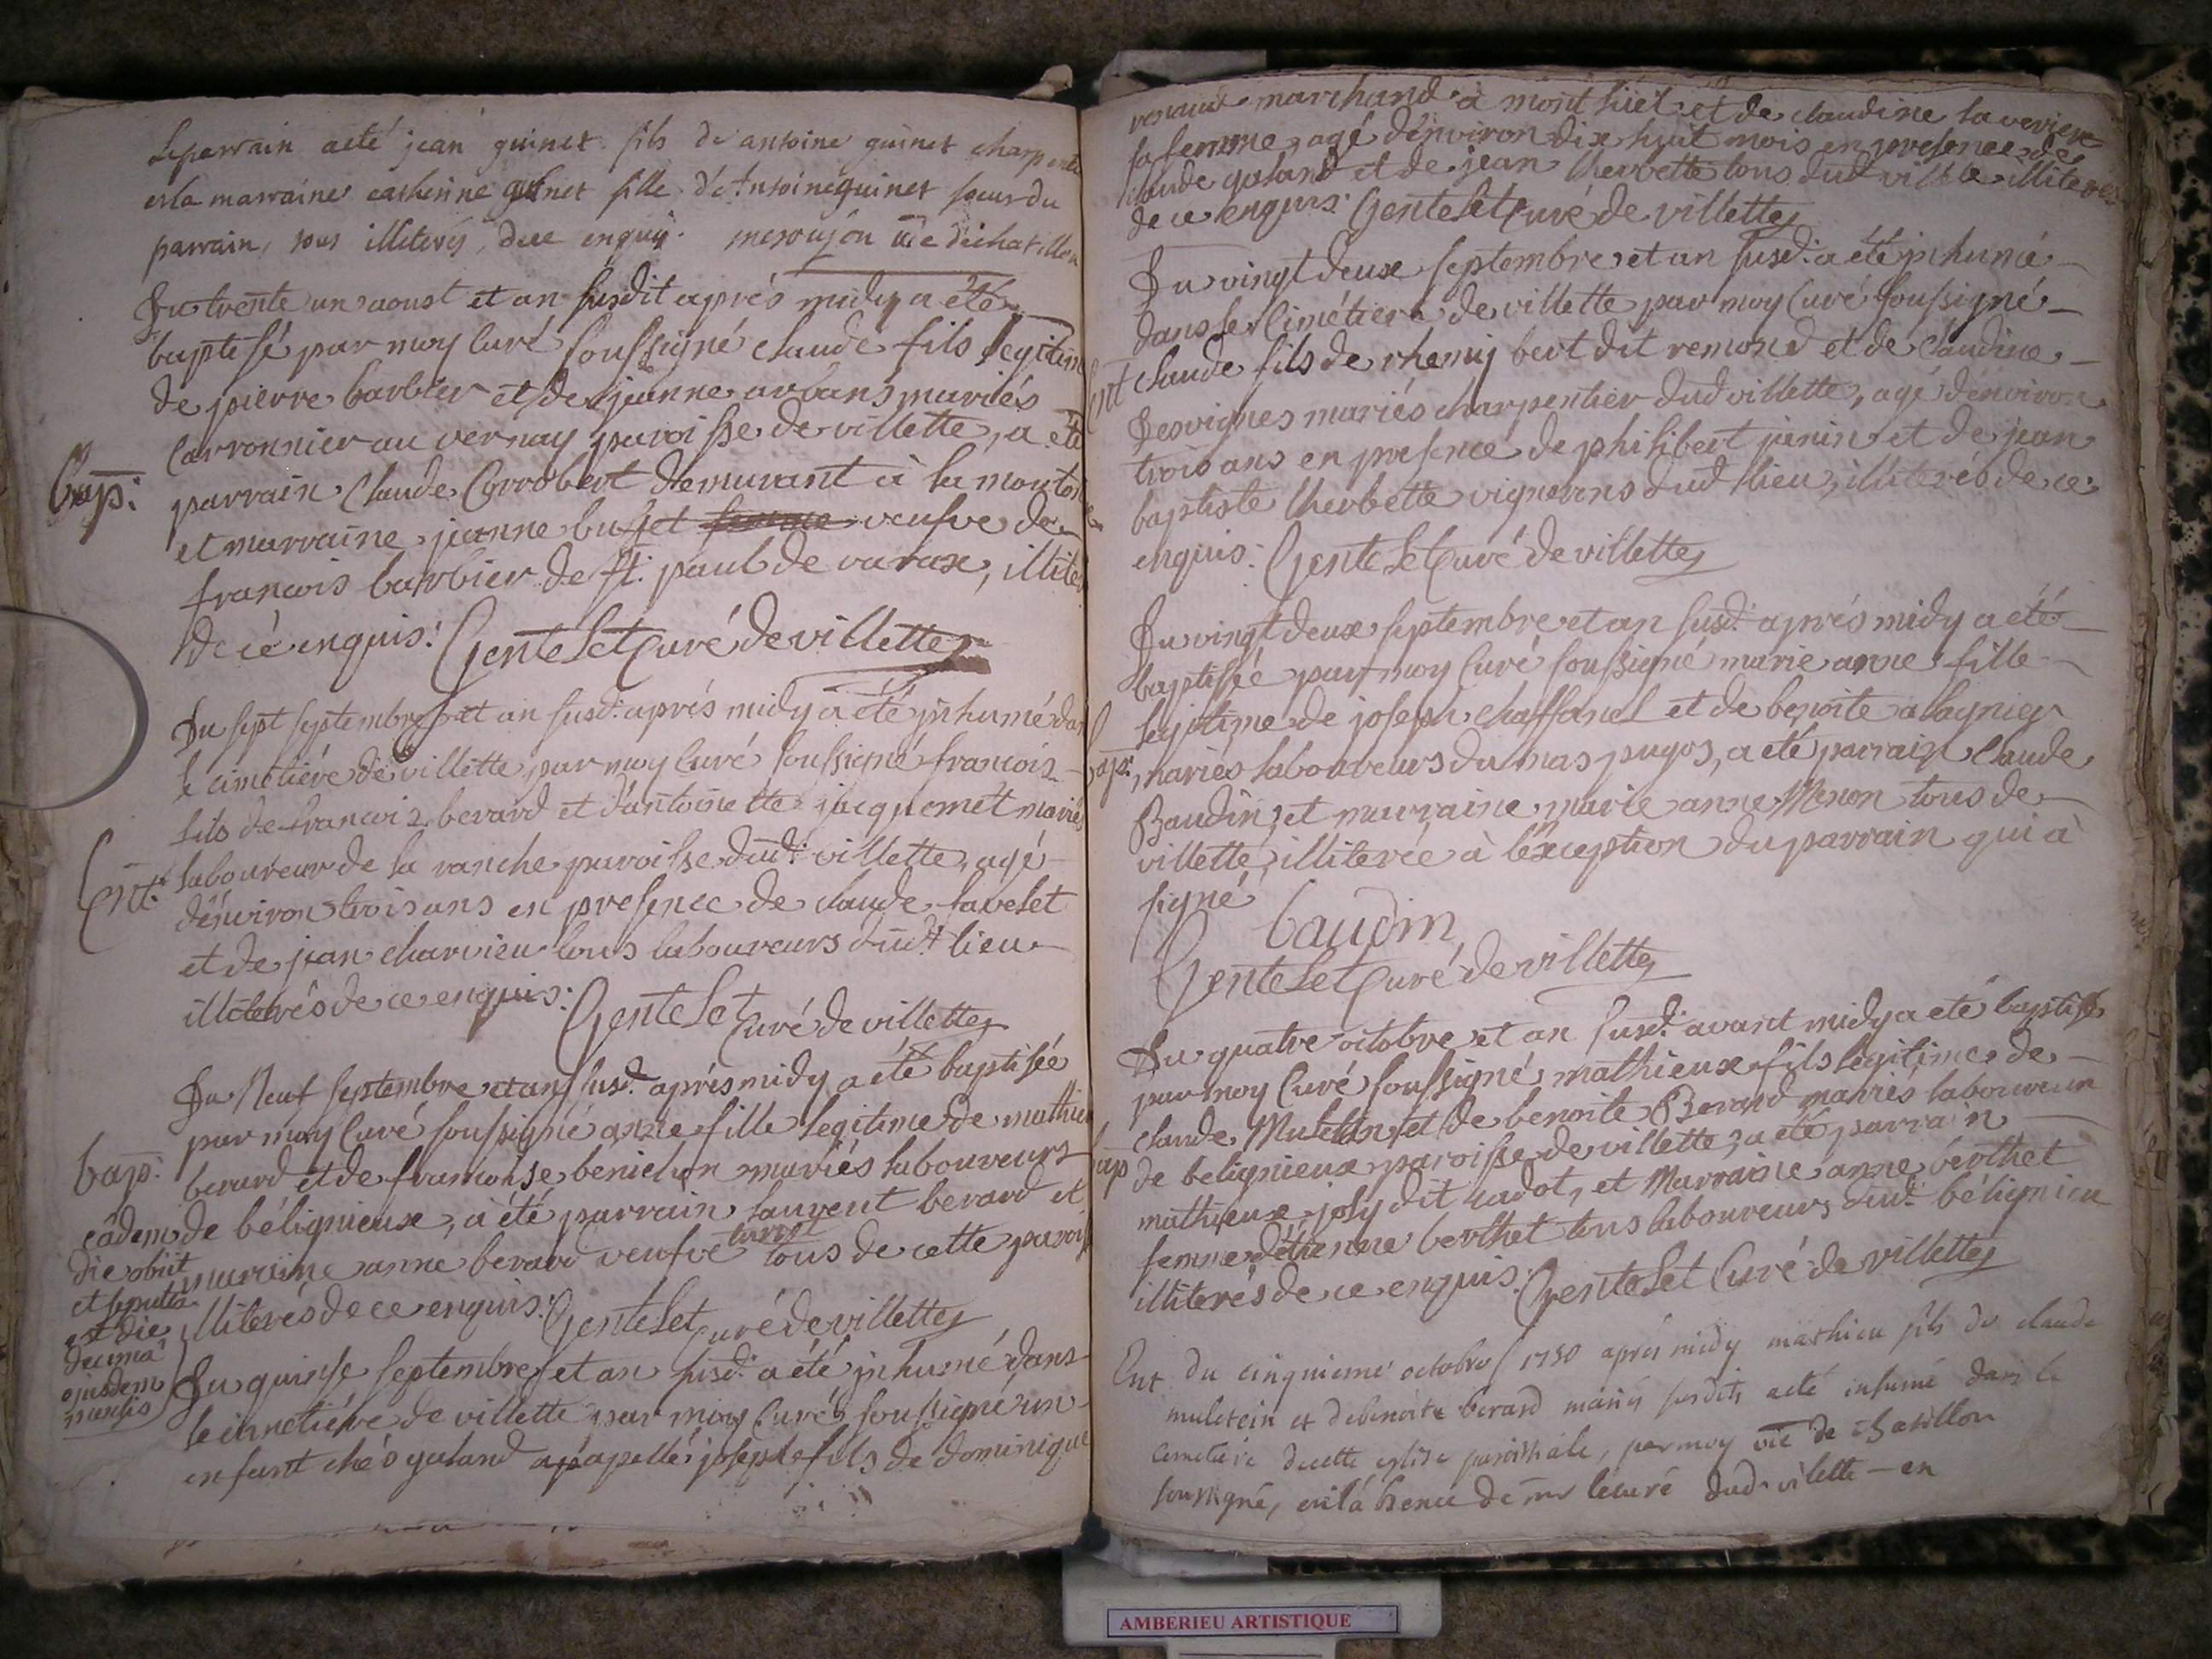 Le parrain a eté jean guinet fils de antoine guinet charpentier
et la marraine catherine guinet fille d'Antoine guinet soeur du
parrain, tous illiterés, de ce enquis. vic de chatillon
Du trente un aoust et an susdit après midy a été
baptisé par moy Curé soussigné claude fils legitime
de pierre barbier et de jeanne arbans mariés
Carronnier au vernay paroisse de villette, a été
Bap:
parrain Claude Corrobert demurant à la
et marraine jeanne buffet femme veufve de
francois barbier de St. paul de varax, illite
de ce enquis: Gentelet Curé de villette
Du sept septembre et an susd: après midy a été inhumé dan
le cimetière de villette par moy Curé soussigné francois
fils de francois berard et d'antoinette jacquemet mariés
Ent:
laboureur de la ranche paroisse dud: villette, agé
d'énviron trois ans en presence de claude favelet
et de jean charvieu tous laboureurs dudt lieu
illiterés de ce enquis: Gentelet Curé de villette
Du Neuf septembre et an susd. après midy a été baptisée
par moy Curé soussigné anne fille legitime de mathieu
bap:
berard et de francoise benichon mariés laboureurs
de bélignieux, a été parrain laurent berard et
marraine anne berard veufve tous de cette parois
illiterés de ce enquis: Gentelet Curé de villette
eâdem
die obiit
et sepulta
est die
decimâ
ejusdem
mensis
Du quinse septembre et an susd: a été inhumé dans
le cimetière de villette par moy Curé soussigné un
enfant chés galand apapellé joseph fils de dominique
renaud marchand à mont luel et de claudine laveriere
sa femme, agé d'énviron dix huit mois en presence de
claude galand et de jean lherbette tous dud villette illiterés
de ce enquis: Gentelet Curé de villette
Du vingt deux septembre et an susd: a été inhumé
dans le Cimétiere de villette par moy Curé soussigné
Ent
claude fils de rhemy bert dit remond et de claudine
Desvignes mariés charpentier dud villette, agé d'énviron
trois ans en presence de philibert janin et de jean
baptiste lherbette vignerons dud lieu, illiterés de ce
enquis: Gentelet Curé de villette
Du vingt deux septembre et an susd: après midy a été
baptisée par moy Curé soussigné marie anne fille
legitime de joseph chaffanel et de benoite alagnier
bap:
mariés laboureurs du mas pugos, a été parrain Claude
Baudin, et marraine marie anne Menon tous de
villette, illiterée à l'exception du parrain qui à
signé
baudin
Gentelet Curé de villette
Du quatre octobre et an susd: avant midy a été baptisé
par moy Curé soussigné, mathieux fils legitime de
claude Muletin et de benoite Berard mariés laboureur
bap
de belignieux paroisse de villette, a été parrain
mathieux joly dit cadot, et Marraine anne berthet
femme d'étienne berthet tous laboureurs dud: bélignieu
illiterés de ce enquis: Gentelet Curé de villette
Ent du cinquieme octobre 1750 après midy mathieu fils de claude
muletein et debenoite berard mariés susdits a eté inhumé dans le
cemetaire decette eglise paroissiale, par moy vic de chatillon
soussigné, en l'absence de mr lecuré dud. vilette – en
AMBERIEU ARTISTIQUE